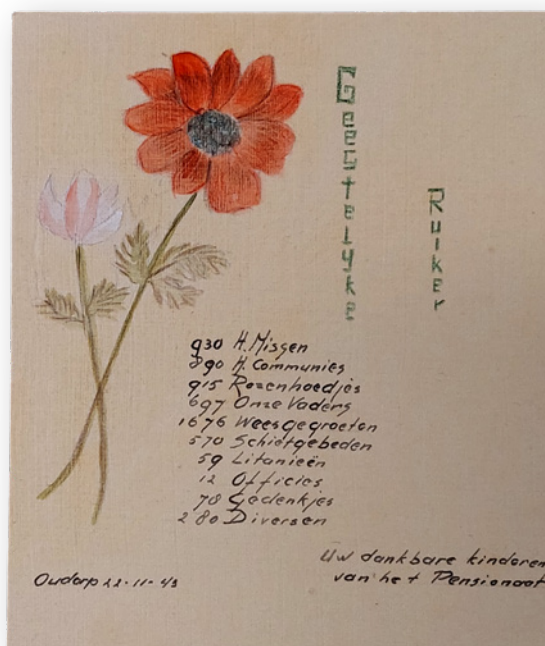 Geestelyke
Ruiker
930 H. Missen
890 H. Communies
915 Rozenhoedjes
697 Onze Vaders
1676 Weesgegroeten
570 Schietgebeden
59 Litanieën
12 Officies
78 Gedenkjes
280 Diversen
Uw dankbare kinderen
van het Pensionaat
Oudorp 22-11-43